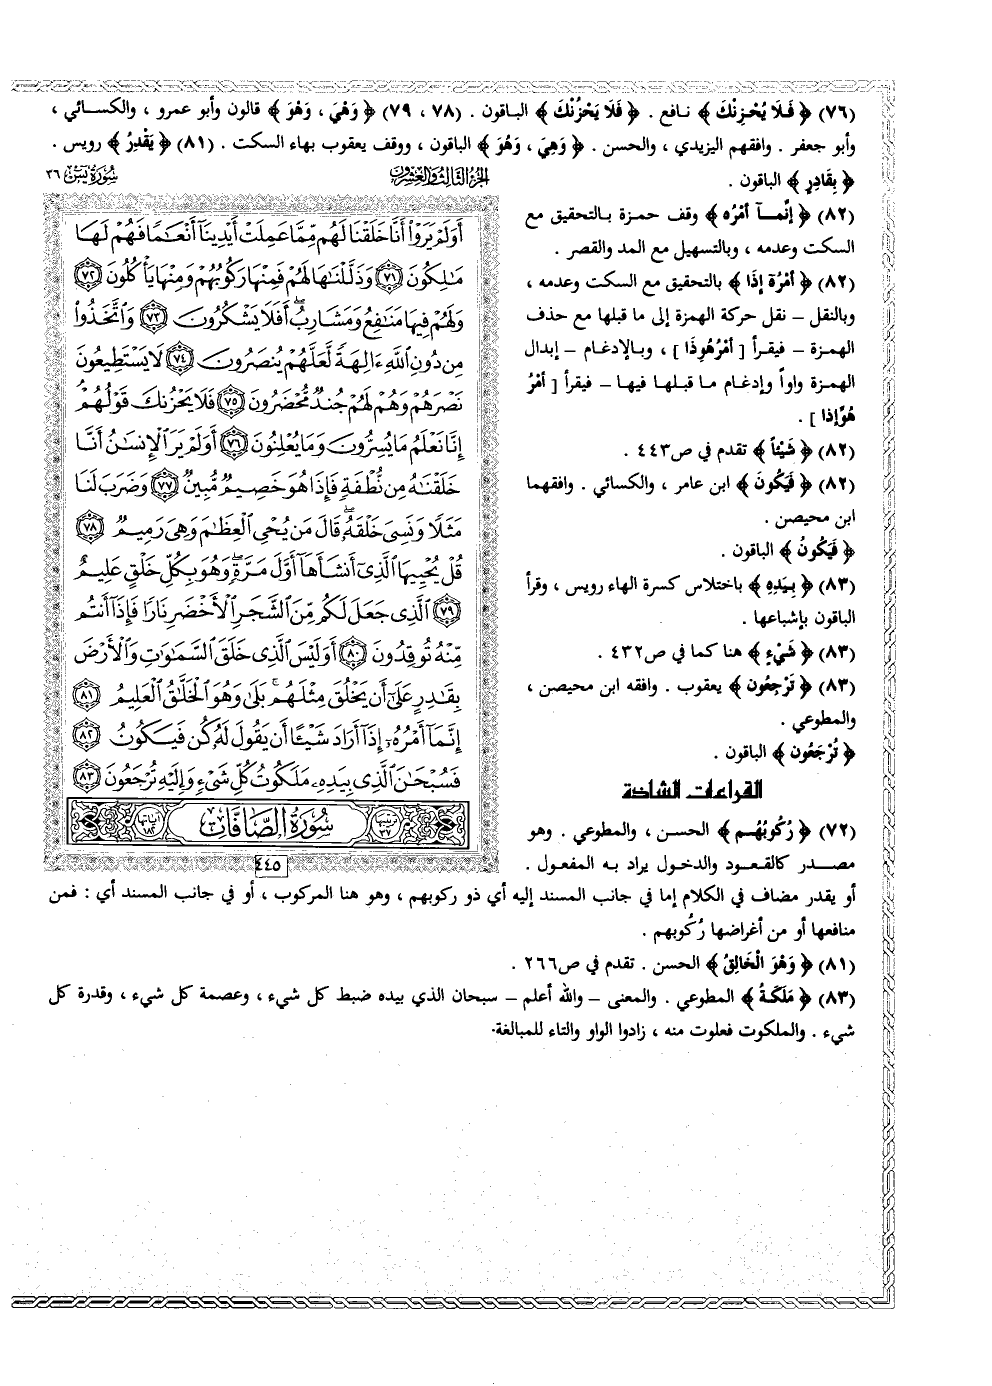 (٧٦) ﴿ فَلَا يُحْزِنْكَ ﴾ نافع . ﴿ فَلَا يَحْزُنْكَ ﴾ الباقون . (٧٨ ، ٧٩) ﴿ وَهْيَ ، وَهْوَ ﴾ قالون وأبو عمرو ، والكسائي ،
وأبو جعفر . وافقهم اليزيدي ، والحسن . ﴿ وَهِيَ ، وَهُوَ ﴾ الباقون ، ووقف يعقوب بهاء السكت . (٨١) ﴿ يَقْدِرُ ﴾ رويس .
﴿ بِقَادِرٍ ﴾ الباقون .
(٨٢) ﴿ إِنَّمَآ أَمْرُه ﴾ وقف حمزة بالتحقيق مع
السكت وعدمه ، وبالتسهيل مع المد والقصر .
(٨٢) ﴿ أَمْرُهُ إِذَا ﴾ بالتحقيق مع السكت وعدمه ،
وبالنقل – نقل حركة الهمزة إلى ما قبلها مع حذف
الهمزة – فيقرأ [ أَمْرُهُوِذَا ] ، وبالإدغام – إبدال
الهمزة واواً وإدغام ما قبلها فيها – فيقرأ [ أَمْرُ
هُوِّإذا ] .
(٨٢) ﴿ شَيْئاً ﴾ تقدم في ص٤٤٣ .
(٨٢) ﴿ فَيَكُونَ ﴾ ابن عامر ، والكسائي . وافقهما
ابن محيصن .
﴿ فَيَكُونُ ﴾ الباقون .
(٨٣) ﴿ بِيَدِهِ ﴾ باختلاس كسرة الهاء رويس ، وقرأ
الباقون بإشباعها .
(٨٣) ﴿ شَيْءٍ ﴾ هنا كما في ص٤٣٢ .
(٨٣) ﴿ تَرْجِعُون ﴾ يعقوب . وافقه ابن محيصن ،
والمطوعي .
﴿ تُرْجَعُون ﴾ الباقون .
القراءات الشاذة
(٧٢) ﴿ رُكُوبُهُم ﴾ الحسن ، والمطوعي . وهو
مصدر كالقعود والدخول يراد به المفعول .
الجزء الثالث والعشرون
سورة يس ٣٦
أَوَلَمْ يَرَوْا۟ أَنَّا خَلَقْنَا لَهُم مِّمَّا عَمِلَتْ أَيْدِينَآ أَنْعَٰمًا فَهُمْ لَهَا
مَٰلِكُونَ ٧١ وَذَلَّلْنَٰهَا لَهُمْ فَمِنْهَا رَكُوبُهُمْ وَمِنْهَا يَأْكُلُونَ ٧٢
وَلَهُمْ فِيهَا مَنَٰفِعُ وَمَشَارِبُ ۖ أَفَلَا يَشْكُرُونَ ٧٣ وَٱتَّخَذُوا۟
مِن دُونِ ٱللَّهِ ءَالِهَةً لَّعَلَّهُمْ يُنصَرُونَ ٧٤ لَا يَسْتَطِيعُونَ
نَصْرَهُمْ وَهُمْ لَهُمْ جُندٌ مُّحْضَرُونَ ٧٥ فَلَا يَحْزُنكَ قَوْلُهُمْ
إِنَّا نَعْلَمُ مَا يُسِرُّونَ وَمَا يُعْلِنُونَ ٧٦ أَوَلَمْ يَرَ ٱلْإِنسَٰنُ أَنَّا
خَلَقْنَٰهُ مِن نُّطْفَةٍ فَإِذَا هُوَ خَصِيمٌ مُّبِينٌ ٧٧ وَضَرَبَ لَنَا
مَثَلًا وَنَسِىَ خَلْقَهُۥ ۖ قَالَ مَن يُحْىِ ٱلْعِظَٰمَ وَهِىَ رَمِيمٌ ٧٨
قُلْ يُحْيِيهَا ٱلَّذِىٓ أَنشَأَهَآ أَوَّلَ مَرَّةٍ ۖ وَهُوَ بِكُلِّ خَلْقٍ عَلِيمٌ
٧٩ ٱلَّذِى جَعَلَ لَكُم مِّنَ ٱلشَّجَرِ ٱلْأَخْضَرِ نَارًا فَإِذَآ أَنتُم
مِّنْهُ تُوقِدُونَ ٨٠ أَوَلَيْسَ ٱلَّذِى خَلَقَ ٱلسَّمَٰوَٰتِ وَٱلْأَرْضَ
بِقَٰدِرٍ عَلَىٰٓ أَن يَخْلُقَ مِثْلَهُم ۚ بَلَىٰ وَهُوَ ٱلْخَلَّٰقُ ٱلْعَلِيمُ ٨١
إِنَّمَآ أَمْرُهُۥٓ إِذَآ أَرَادَ شَيْـًٔا أَن يَقُولَ لَهُۥ كُن فَيَكُونُ ٨٢
فَسُبْحَٰنَ ٱلَّذِى بِيَدِهِۦ مَلَكُوتُ كُلِّ شَىْءٍ وَإِلَيْهِ تُرْجَعُونَ ٨٣
ترتيبها ٣٧ سورة الصافات آياتها ١٨٢
٤٤٥
أو يقدر مضاف في الكلام إما في جانب المسند إليه أي ذو ركوبهم ، وهو هنا المركوب ، أو في جانب المسند أي : فمن
منافعها أو من أغراضها رُكُوبهم .
(٨١) ﴿ وَهُوَ الْخَالِقُ ﴾ الحسن . تقدم في ص٢٦٦ .
(٨٣) ﴿ مَلَكَةُ ﴾ المطوعي . والمعنى – والله أعلم – سبحان الذي بيده ضبط كل شيء ، وعصمة كل شيء ، وقدرة كل
شيء . والملكوت فعلوت منه ، زادوا الواو والتاء للمبالغة.